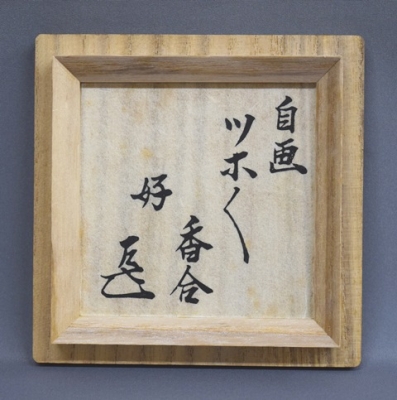 自画
ツホ〱
香合
好